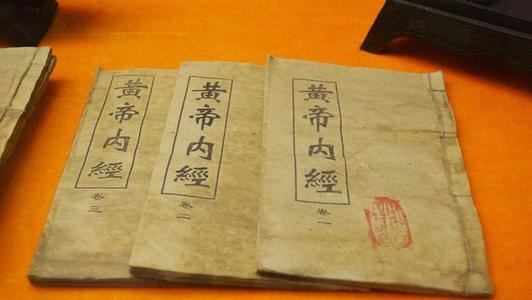 黃帝内經
卷一
黃帝内經
卷二
黃帝内經
卷三